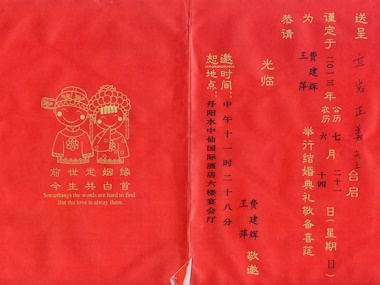 送呈 台启
谨定于二〇一三年 公历 七 月 二十一 日(星期 日)
农历 六 十四
为 费建辉 王萍 举行结婚典礼敬备喜筵
恭请
光临
费建辉
王萍 敬邀
邀 时间:中午十一时二十八分
恕 地点:丹阳水中仙国际酒店六楼宴会厅
前世定姻缘
今生共白首
Somethings the words are hard to find
But the love is alway there.